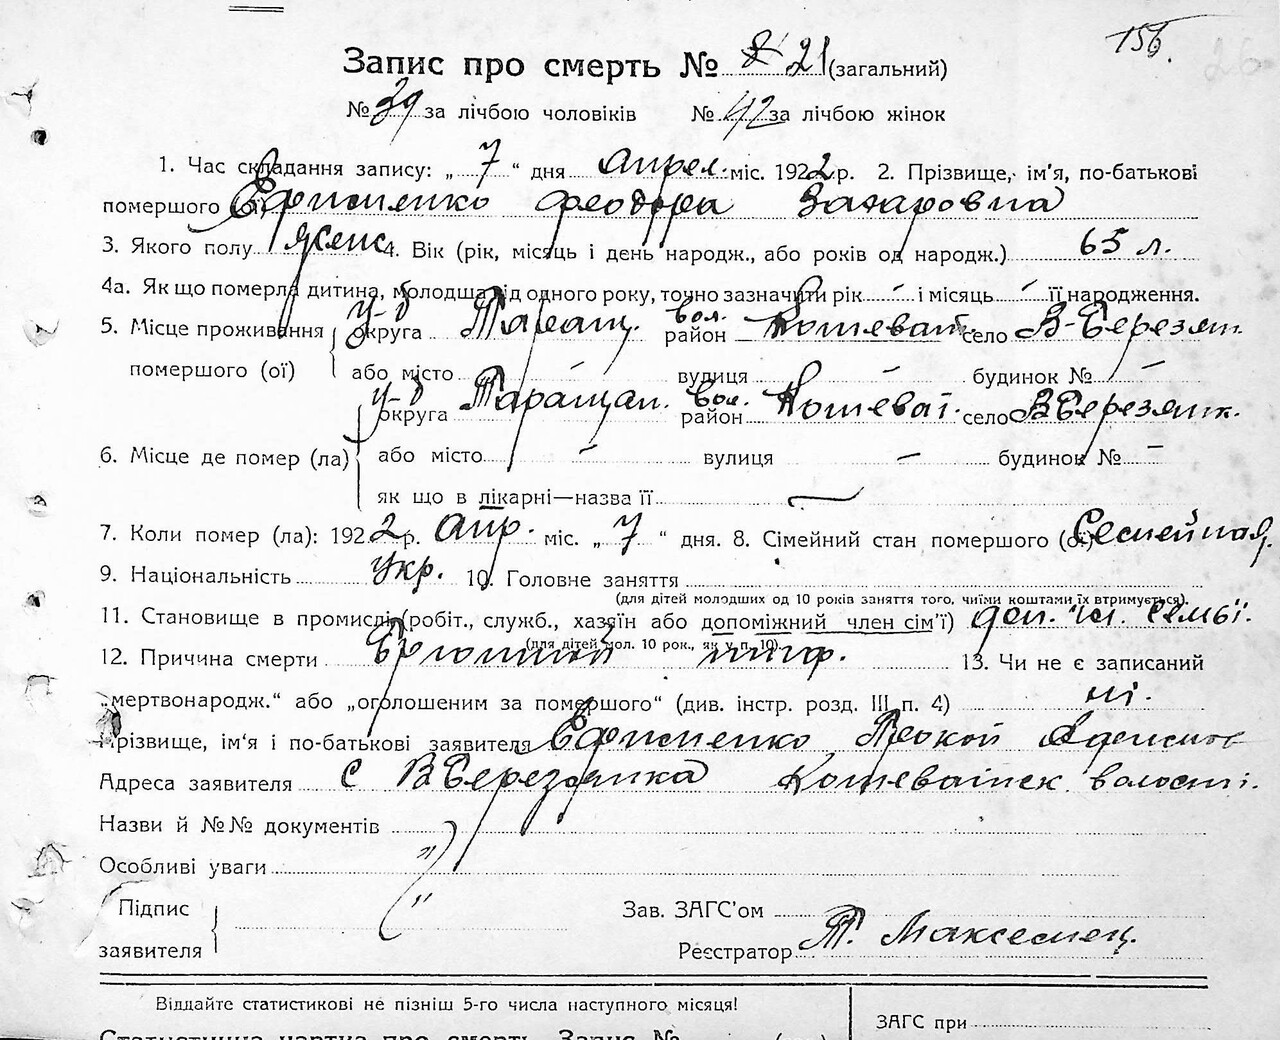 156.
Запис про смерть № 21 (загальний)
№ 39 за лічбою чоловіків № 42 за лічбою жінок
1. Час складання запису: „ 7 “ дня апрел. міс. 1922 р. 2. Прізвище, ім'я, по-батькові
помершого (ої) Ефименко Феодора Захаровна
3. Якого полу женс 4. Вік (рік, місяць і день народж., або років од народж.) 65 л.
4а. Як що померла дитина, молодша від одного року, точно зазначити рік - і місяць - її народження.
5. Місце проживання помершого (ої)
у-д округа Таращ. вол. район Кошеват. село В-Березян.
або місто вулиця - будинок № -
6. Місце де помер (ла)
у-д округа Таращан. вол. район Кошеваї. село ВБерезянк.
або місто - вулиця - будинок № -
як що в лікарні—назва її —
7. Коли помер (ла): 1922 р. апр. міс. „ 7 “ дня. 8. Сімейний стан помершого (ої) Семейная
9. Національність укр. 10. Головне заняття
(для дітей молодших од 10 років заняття того, чиїми коштами їх втримується).
11. Становище в промислі (робіт., служб., хазяїн або допоміжний член сім'ї) доп. чл. семьї.
(для дітей мол. 10 рок., як у п. 10).
12. Причина смерти Брюшной тиф. 13. Чи не є записаний
„мертвонародж.“ або „оголошеним за помершого“ (див. інстр. розд. III п. 4) ні.
Прізвище, ім'я і по-батькові заявителя Ефименко
Адреса заявителя с ВБерезянка Кошеватск. волости.
Назви й №№ документів
Особливі уваги "
Підпис заявителя "
Зав. ЗАГС'ом
Реєстратор Т. Максемец.
Віддайте статистикові не пізніш 5-го числа наступного місяця!
ЗАГС при
Статистична картка про смерть. Запис №